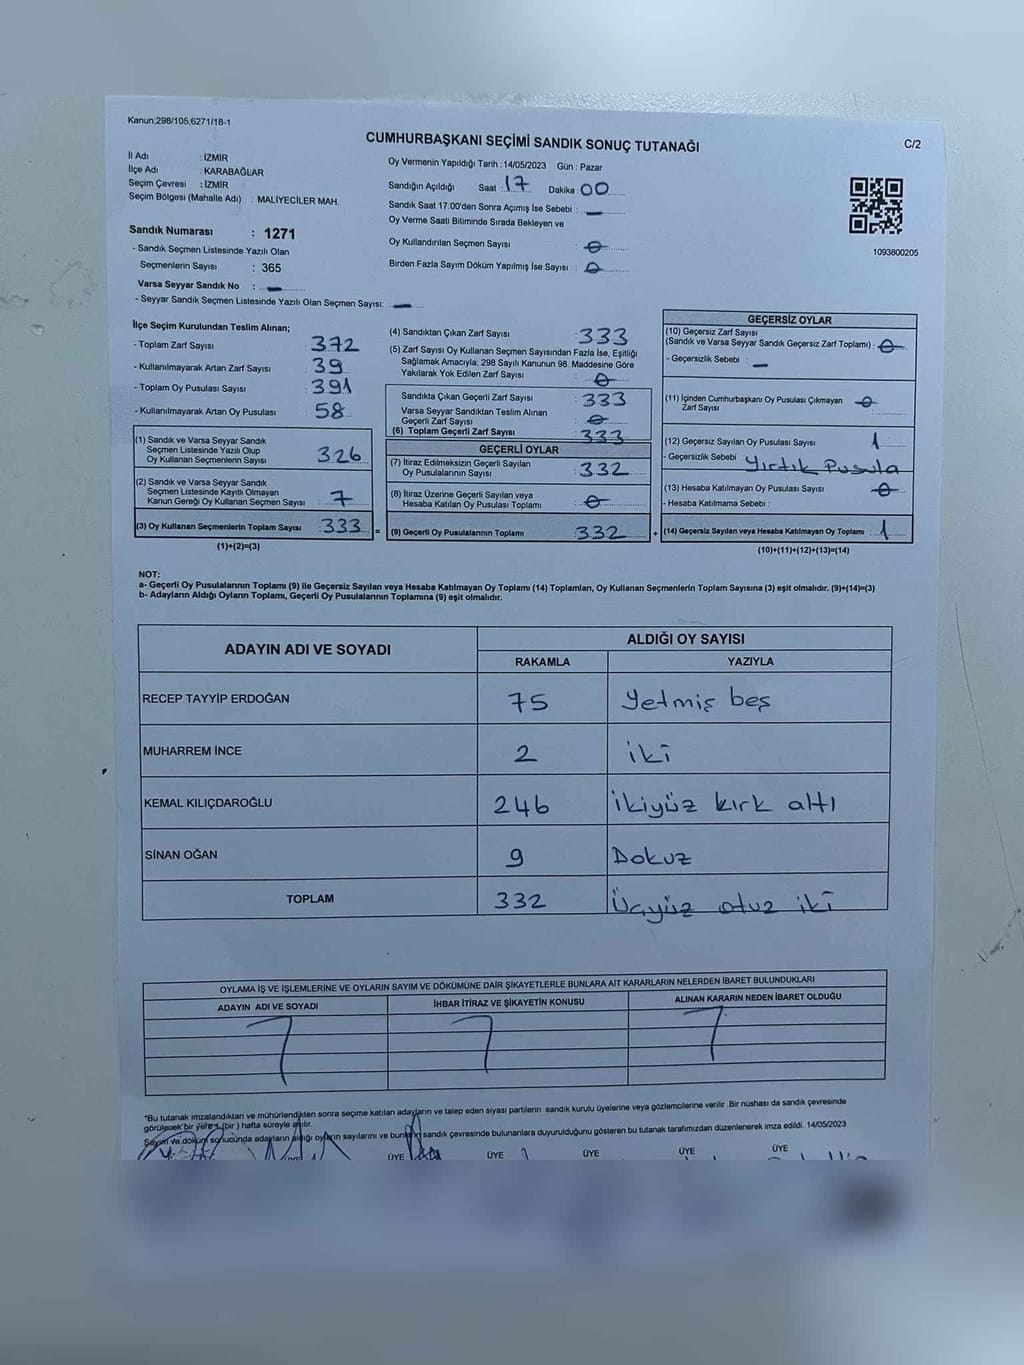 Kanun;298/105,6271/18-1
CUMHURBAŞKANI SEÇİMİ SANDIK SONUÇ TUTANAĞI
C/2
İl Adı : İZMİR
İlçe Adı : KARABAĞLAR
Seçim Çevresi : İZMİR
Seçim Bölgesi (Mahalle Adı) : MALİYECİLER MAH.
Oy Vermenin Yapıldığı Tarih : 14/05/2023 Gün : Pazar
Sandığın Açıldığı Saat : 17 Dakika : 00
Sandık Saat 17:00'den Sonra Açımış İse Sebebi : —
Oy Verme Saati Bitiminde Sırada Bekleyen ve
Oy Kullandırılan Seçmen Sayısı : 0
Birden Fazla Sayım Döküm Yapılmış İse Sayısı : 0
1093800205
Sandık Numarası : 1271
- Sandık Seçmen Listesinde Yazılı Olan
Seçmenlerin Sayısı : 365
Varsa Seyyar Sandık No : —
- Seyyar Sandık Seçmen Listesinde Yazılı Olan Seçmen Sayısı: —
İlçe Seçim Kurulundan Teslim Alınan;
- Toplam Zarf Sayısı : 372
- Kullanılmayarak Artan Zarf Sayısı : 39
- Toplam Oy Pusulası Sayısı : 391
- Kullanılmayarak Artan Oy Pusulası : 58
(1) Sandık ve Varsa Seyyar Sandık
Seçmen Listesinde Yazılı Olup
Oy Kullanan Seçmenlerin Sayısı : 326
(2) Sandık ve Varsa Seyyar Sandık
Seçmen Listesinde Kayıtlı Olmayan
Kanun Gereği Oy Kullanan Seçmen Sayısı : 7
(3) Oy Kullanan Seçmenlerin Toplam Sayısı : 333
(1)+(2)=(3)
(4) Sandıktan Çıkan Zarf Sayısı : 333
(5) Zarf Sayısı Oy Kullanan Seçmen Sayısından Fazla İse, Eşitliği
Sağlamak Amacıyla; 298 Sayılı Kanunun 98. Maddesine Göre
Yakılarak Yok Edilen Zarf Sayısı : 0
Sandıkta Çıkan Geçerli Zarf Sayısı : 333
Varsa Seyyar Sandıktan Teslim Alınan
Geçerli Zarf Sayısı : 0
(6) Toplam Geçerli Zarf Sayısı : 333
GEÇERLİ OYLAR
(7) İtiraz Edilmeksizin Geçerli Sayılan
Oy Pusulalarının Sayısı : 332
(8) İtiraz Üzerine Geçerli Sayılan veya
Hesaba Katılan Oy Pusulası Toplamı : 0
= (9) Geçerli Oy Pusulalarının Toplamı : 332
GEÇERSİZ OYLAR
(10) Geçersiz Zarf Sayısı
(Sandık ve Varsa Seyyar Sandık Geçersiz Zarf Toplamı) : 0
- Geçersizlik Sebebi : —
(11) İçinden Cumhurbaşkanı Oy Pusulası Çıkmayan
Zarf Sayısı : 0
(12) Geçersiz Sayılan Oy Pusulası Sayısı : 1
- Geçersizlik Sebebi : Yırtık Pusula
(13) Hesaba Katılmayan Oy Pusulası Sayısı : 0
- Hesaba Katılmama Sebebi :
+ (14) Geçersiz Sayılan veya Hesaba Katılmayan Oy Toplamı : 1
(10)+(11)+(12)+(13)=(14)
NOT:
a- Geçerli Oy Pusulalarının Toplamı (9) ile Geçersiz Sayılan veya Hesaba Katılmayan Oy Toplamı (14) Toplamları, Oy Kullanan Seçmenlerin Toplam Sayısına (3) eşit olmalıdır. (9)+(14)=(3)
b- Adayların Aldığı Oyların Toplamı, Geçerli Oy Pusulalarının Toplamına (9) eşit olmalıdır.
ADAYIN ADI VE SOYADI
ALDIĞI OY SAYISI
RAKAMLA YAZIYLA
RECEP TAYYİP ERDOĞAN 75 Yetmiş beş
MUHARREM İNCE 2 iki
KEMAL KILIÇDAROĞLU 246 İkiyüz kırk altı
SİNAN OĞAN 9 Dokuz
TOPLAM 332 Üçyüz otuz iki
OYLAMA İŞ VE İŞLEMLERİNE VE OYLARIN SAYIM VE DÖKÜMÜNE DAİR ŞİKAYETLERLE BUNLARA AİT KARARLARIN NELERDEN İBARET BULUNDUKLARI
ADAYIN ADI VE SOYADI İHBAR İTİRAZ VE ŞİKAYETİN KONUSU ALINAN KARARIN NEDEN İBARET OLDUĞU
*Bu tutanak imzalandıktan ve mühürlendikten sonra seçime katılan adayların ve talep eden siyasi partilerin sandık kurulu üyelerine veya gözlemcilerine verilir. Bir nüshası da sandık çevresinde
görülecek bir yere 1 (bir) hafta süreyle asılır.
Sayım ve döküm sonucunda adayların aldığı oyların sayılarını ve bunların sandık çevresinde bulunanlara duyurulduğunu gösteren bu tutanak tarafımızdan düzenlenerek imza edildi. 14/05/2023
ÜYE ÜYE ÜYE ÜYE ÜYE